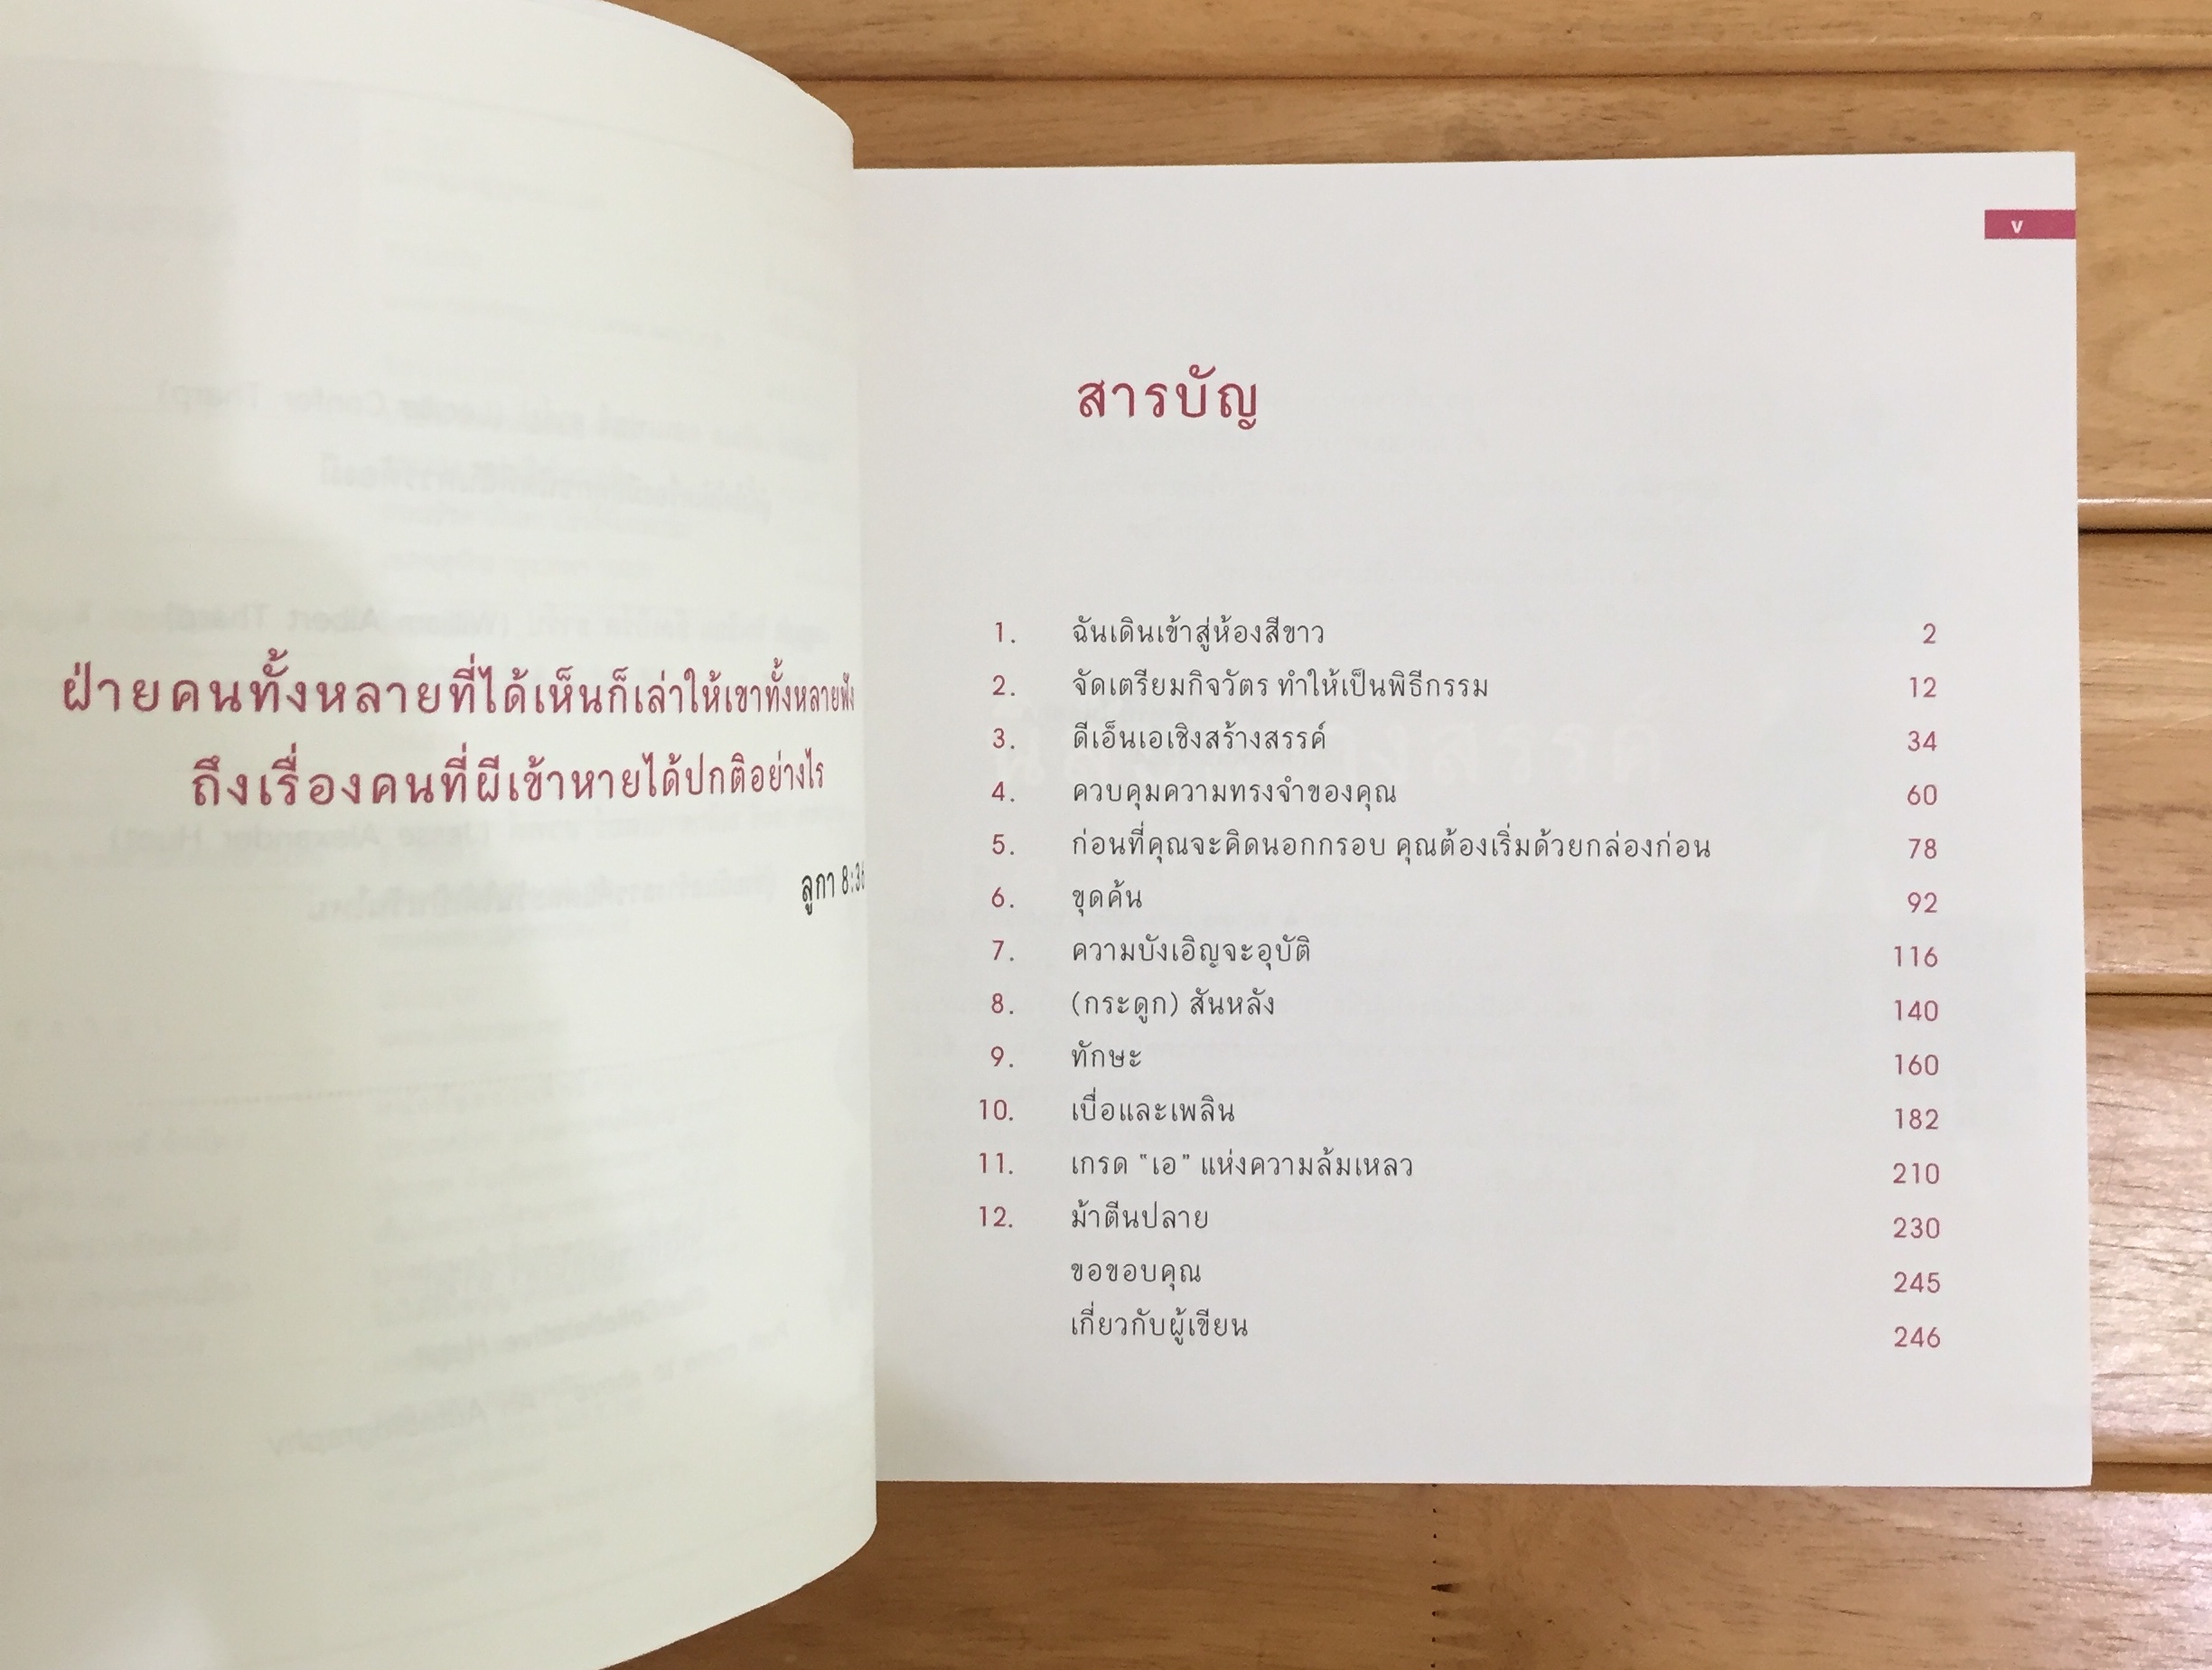 ฝ่ายคนทั้งหลายที่ได้เห็นก็เล่าให้เขาทั้งหลายฟัง
ถึงเรื่องคนที่ผีเข้าหายได้ปกติอย่างไร
ลูกา 8:36
v
สารบัญ
1. ฉันเดินเข้าสู่ห้องสีขาว 2
2. จัดเตรียมกิจวัตร ทำให้เป็นพิธีกรรม 12
3. ดีเอ็นเอเชิงสร้างสรรค์ 34
4. ควบคุมความทรงจำของคุณ 60
5. ก่อนที่คุณจะคิดนอกกรอบ คุณต้องเริ่มด้วยกล่องก่อน 78
6. ขุดค้น 92
7. ความบังเอิญจะอุบัติ 116
8. (กระดูก) สันหลัง 140
9. ทักษะ 160
10. เบื่อและเพลิน 182
11. เกรด "เอ" แห่งความล้มเหลว 210
12. ม้าตีนปลาย 230
ขอขอบคุณ 245
เกี่ยวกับผู้เขียน 246